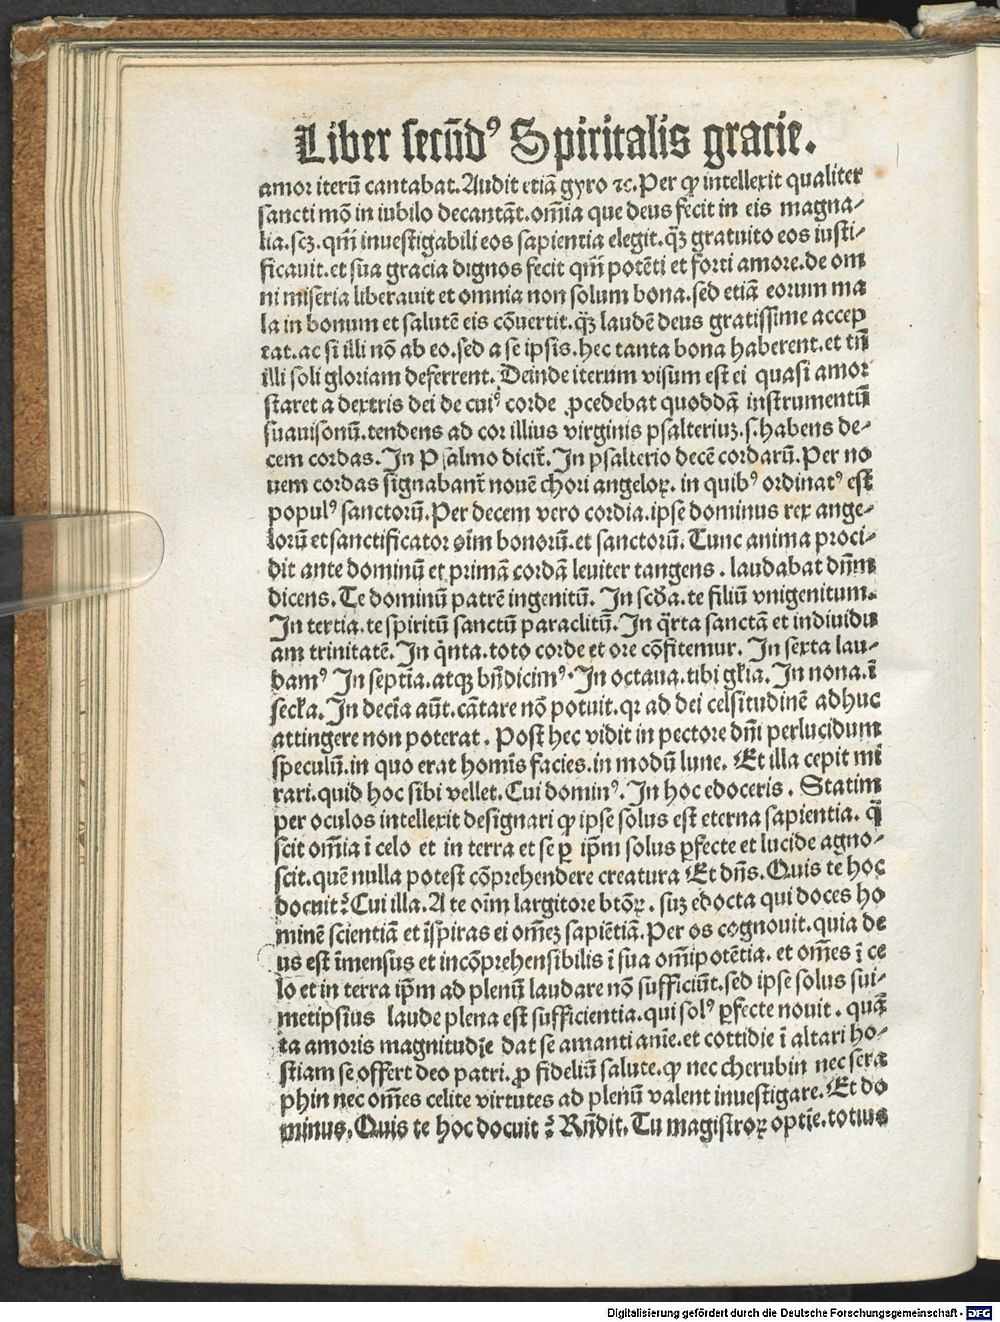 Liber secūdꝰ Spiritalis gracie.
amor iterū cantabat. Audit etiā gyro ⁊c. Per qͥ intellexit qualiter
sancti mō in iubilo decantāt. om̄ia que deus fecit in eis magna-
lia. scꝫ. qm̄ inuestigabili eos sapientia elegit. qͣꝫ gratuito eos iusti-
ficauit. et sua gracia dignos fecit qm̄ potēti et forti amore. de om
ni miseria liberauit et omnia non solum bona. sed etiā eorum ma
la in bonum et salutē eis cōuertit. qͣꝫ laudē deus gratissime accep
tat. ac si illi nō ab eo. sed a se ipsis. hec tanta bona haberent. et tn̄
illi soli gloriam deferrent. Deinde iterum visum est ei quasi amor
staret a dextris dei de cuiꝰ corde ꝓcedebat quoddā instrumentū
suauisonū. tendens ad cor illius virginis psalteriuꝫ. s. habens de-
cem cordas. In Psalmo dicit̄. In psalterio decē cordarū. Per no
uem cordas signabant̄ nouē chori angeloꝝ. in quibꝰ ordinatꝰ est
populꝰ sanctorū. Per decem vero cordia. ipse dominus rex ange-
lorū et sanctificator oīm bonorū. et sanctorū. Tunc anima proci-
dit ante dominū et primā cordā leuiter tangens. laudabat dn̄m
dicens. Te dominū patrē ingenitū. In scd̄a. te filiū vnigenitum.
In tertia. te spiritū sanctū paraclitū. In qͣrta sanctā et indiuidu
am trinitatē. In qͥnta. toto corde et ore cōfitemur. In sexta lau-
damꝰ In septīa. atqꝫ bn̄dicimꝰ. In octaua. tibi gl̄ia. In nona. ī
secl̄a. In decīa aūt. cātare nō potuit. qꝛ ad dei celsitudinē adhuc
attingere non poterat. Post hec vidit in pectore dn̄i perlucidum
speculū. in quo erat homīs facies. in modū lune. Et illa cepit mi
rari. quid hoc sibi vellet. Cui dominꝰ. In hoc edoceris. Statim
per oculos intellexit designari qͥ ipse solus est eterna sapientia. qͥ
scit om̄ia ī celo et in terra et se ꝑ ip̄m solus ꝑfecte et lucide agno-
scit. quē nulla potest cōprehendere creatura Et dn̄s. Quis te hoc
docuit? Cui illa. A te oīm largitore btōꝝ. suꝫ edocta qui doces ho
minē scientiā et īspiras ei om̄eꝫ sapiētiā. Per os cognouit. quia de
us est īmensus et incōprehensibilis ī sua om̄ipotētia. et om̄es ī ce
lo et in terra ip̄m ad plenū laudare nō sufficiūt. sed ipse solus sui-
metipsius laude plena est sufficientia. qui solꝰ ꝑfecte nouit. quā
ta amoris magnitudīe dat se amanti anīe. et cottidie ī altari ho-
stiam se offert deo patri. ꝓ fideliū salute. qͥ nec cherubin nec sera
phin nec om̄es celite virtutes ad plenū valent inuestigare. Et do
minus. Quis te hoc docuit? Rn̄dit. Tu magistroꝝ optīe. totius
Digitalisierung gefördert durch die Deutsche Forschungsgemeinschaft - DFG